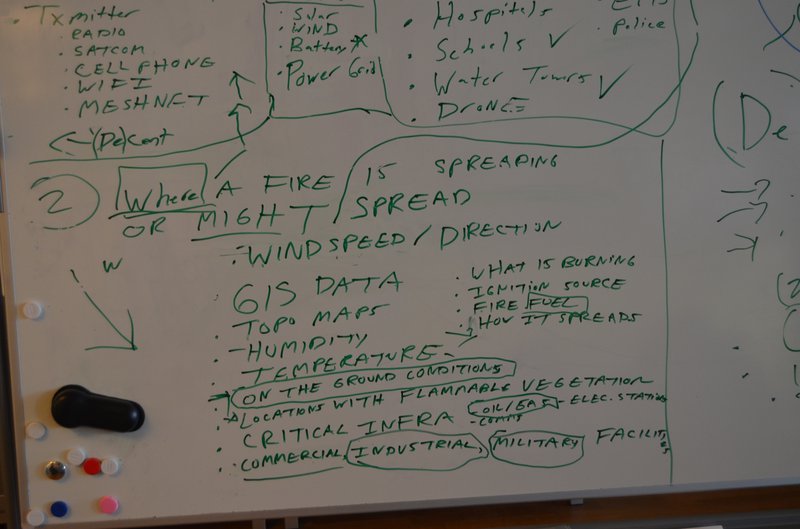 Txmitter
RADIO
SATCOM
CELL PHONE
WIFI
MESHNET
(De)cent
Solar
WIND
Battery
Power Grid
Hospitals
Schools ✓
Water Towers ✓
DRONE
Police
(De
2 Where A FIRE IS SPREADING
OR MIGHT SPREAD
WINDSPEED / DIRECTION
W
GIS DATA
TOPO MAPS
HUMIDITY
TEMPERATURE
WHAT IS BURNING
IGNITION SOURCE
FIRE FUEL
HOW IT SPREADS
ON THE GROUND CONDITIONS
LOCATIONS WITH FLAMMABLE VEGETATION
CRITICAL INFRA OIL/GAS - ELEC. STATIONS
- COMMS
COMMERCIAL, INDUSTRIAL, MILITARY FACILITIES